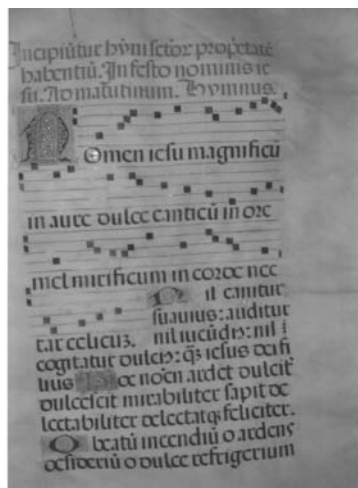 Incipiūtur hȳni sctōꝝ propetatē
habentiū. In festo nominis ie
su. Ad matutinum. Hymnus.
Nomen iesu magnificū
in aure dulce canticū in ore
mel mirificum in corde nec
tar celicum. Nil canitur
suauius: auditur
nil iucūdiꝰ: nil
cogitatur dulciꝰ: qꝫ iesus dei fi
lius Hoc nomē ardet dulcit
dulcescit mirabiliter sapit de
lectabiliter delectatqꝫ feliciter.
O beatū incendiū o ardens
desideriū o dulce refrigerium